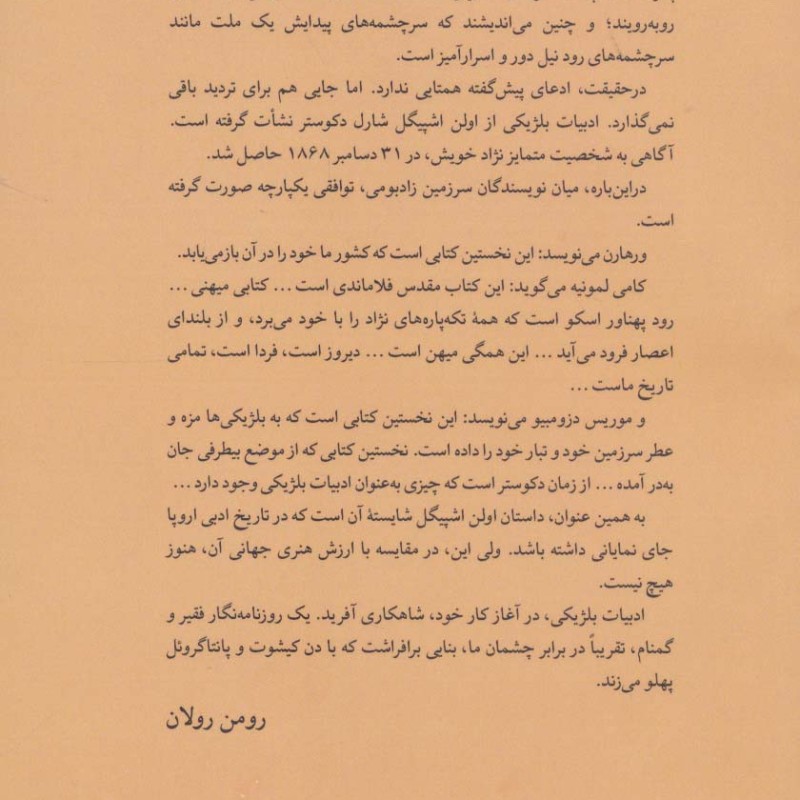 روبه‌رویند؛ و چنین می‌اندیشند که سرچشمه‌های پیدایش یک ملت مانند
سرچشمه‌های رود نیل دور و اسرارآمیز است.
درحقیقت، ادعای پیش‌گفته همتایی ندارد. اما جایی هم برای تردید باقی
نمی‌گذارد. ادبیات بلژیکی از اولن اشپیگل شارل دکوستر نشأت گرفته است.
آگاهی به شخصیت متمایز نژاد خویش، در ۳۱ دسامبر ۱۸۶۸ حاصل شد.
دراین‌باره، میان نویسندگان سرزمین زادبومی، توافقی یکپارچه صورت گرفته
است.
ورهارن می‌نویسد: این نخستین کتابی است که کشور ما خود را در آن بازمی‌یابد.
کامی لمونیه می‌گوید: این کتاب مقدس فلاماندی است ... کتابی میهنی ...
رود پهناور اسکو است که همهٔ تکه‌پاره‌های نژاد را با خود می‌برد، و از بلندای
اعصار فرود می‌آید ... این همگی میهن است ... دیروز است، فردا است، تمامی
تاریخ ماست ...
و موریس دزومبیو می‌نویسد: این نخستین کتابی است که به بلژیکی‌ها مزه و
عطر سرزمین خود و تبار خود را داده است. نخستین کتابی که از موضع بیطرفی جان
به‌در آمده ... از زمان دکوستر است که چیزی به‌عنوان ادبیات بلژیکی وجود دارد ...
به همین عنوان، داستان اولن اشپیگل شایستهٔ آن است که در تاریخ ادبی اروپا
جای نمایانی داشته باشد. ولی این، در مقایسه با ارزش هنری جهانی آن، هنوز
هیچ نیست.
ادبیات بلژیکی، در آغاز کار خود، شاهکاری آفرید. یک روزنامه‌نگار فقیر و
گمنام، تقریباً در برابر چشمان ما، بنایی برافراشت که با دن کیشوت و پانتاگروئل
پهلو می‌زند.
رومن رولان